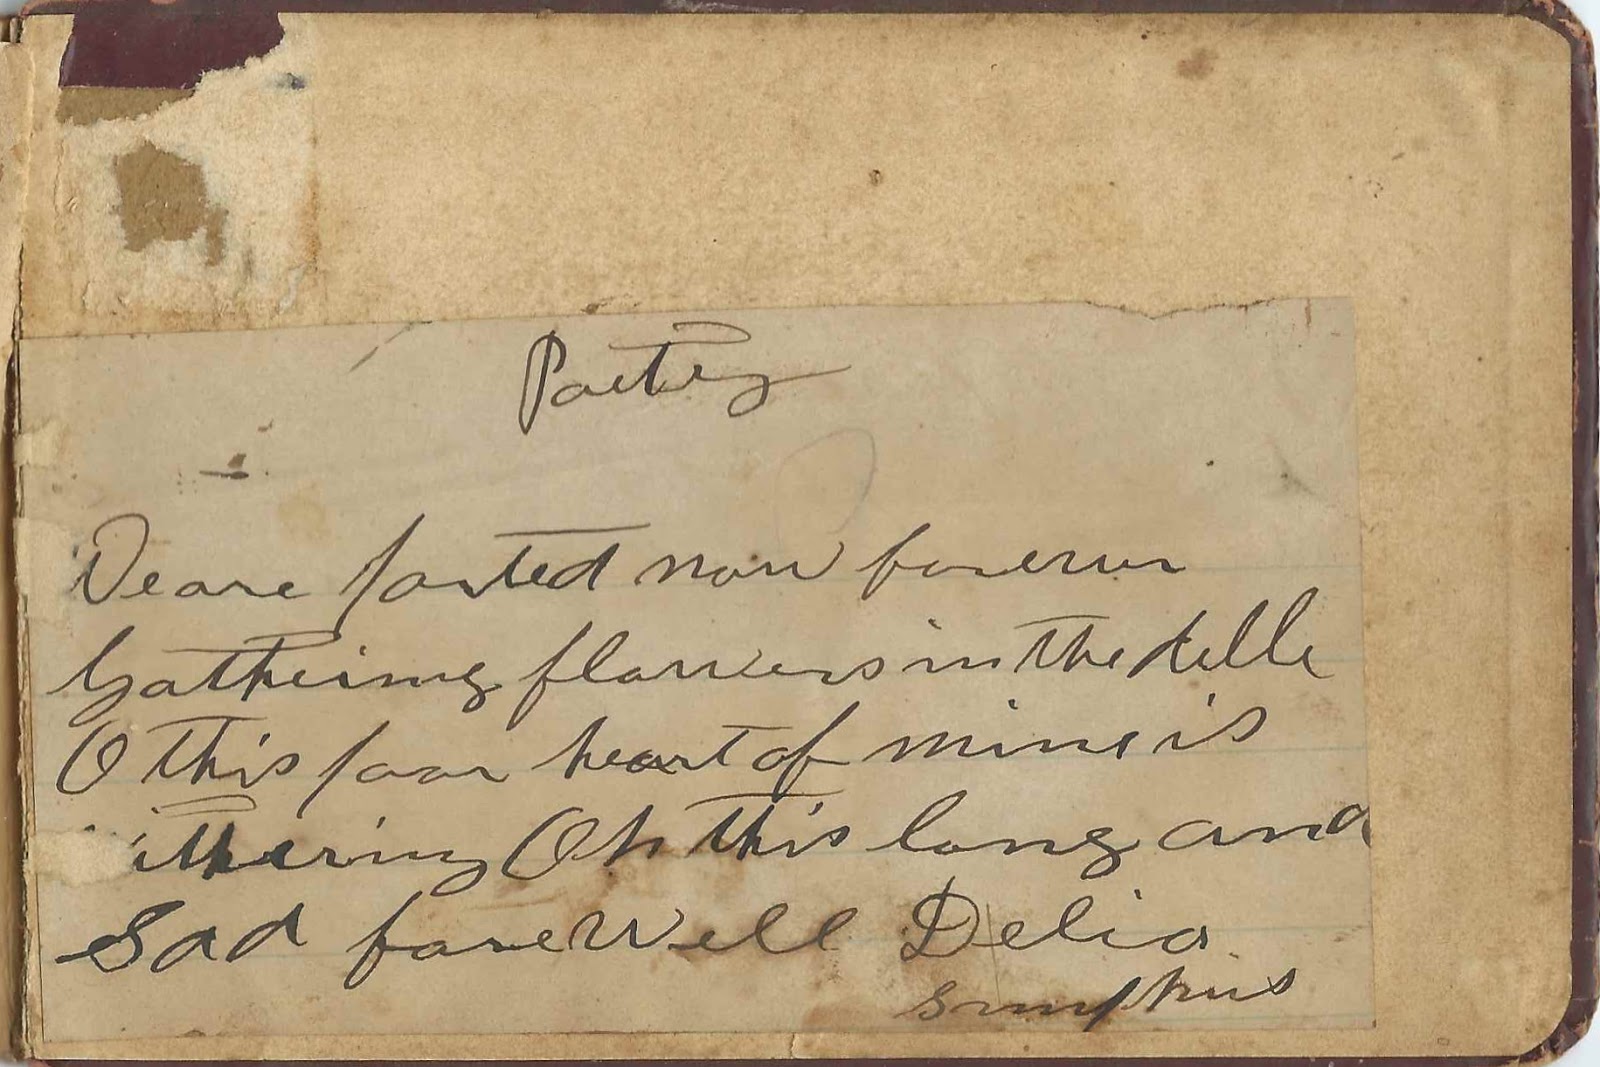 Poetry
Weare parted now forever
Gatheing flowers in the delle
O this poor heart of mine is
ithering Oh this long and
Sad farewell Delia
Simpkins